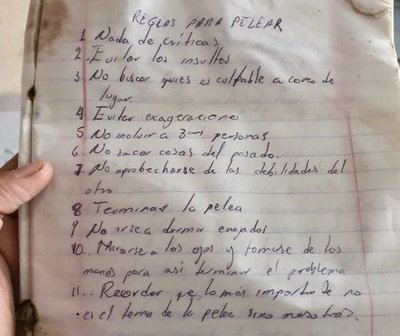 REGLAS PARA PELEAR
1 Nada de críticas.
2. Evitar los insultos
3. No buscar quies es culpable a como de
lugar.
4 Evitar exageraciones
5 No incluir a 3ras personas
6. No sacar cosas del pasado.
7 No aprobecharse de las debilidades del
otro
8 Terminar la pelea
9 No irse a dormir enojados
10.. Mirarse a los ojos y tomarse de las
manos para así terminar el problema
11.. Recordar qe lo más importante no
es el tema de la pelea sino nosotros.